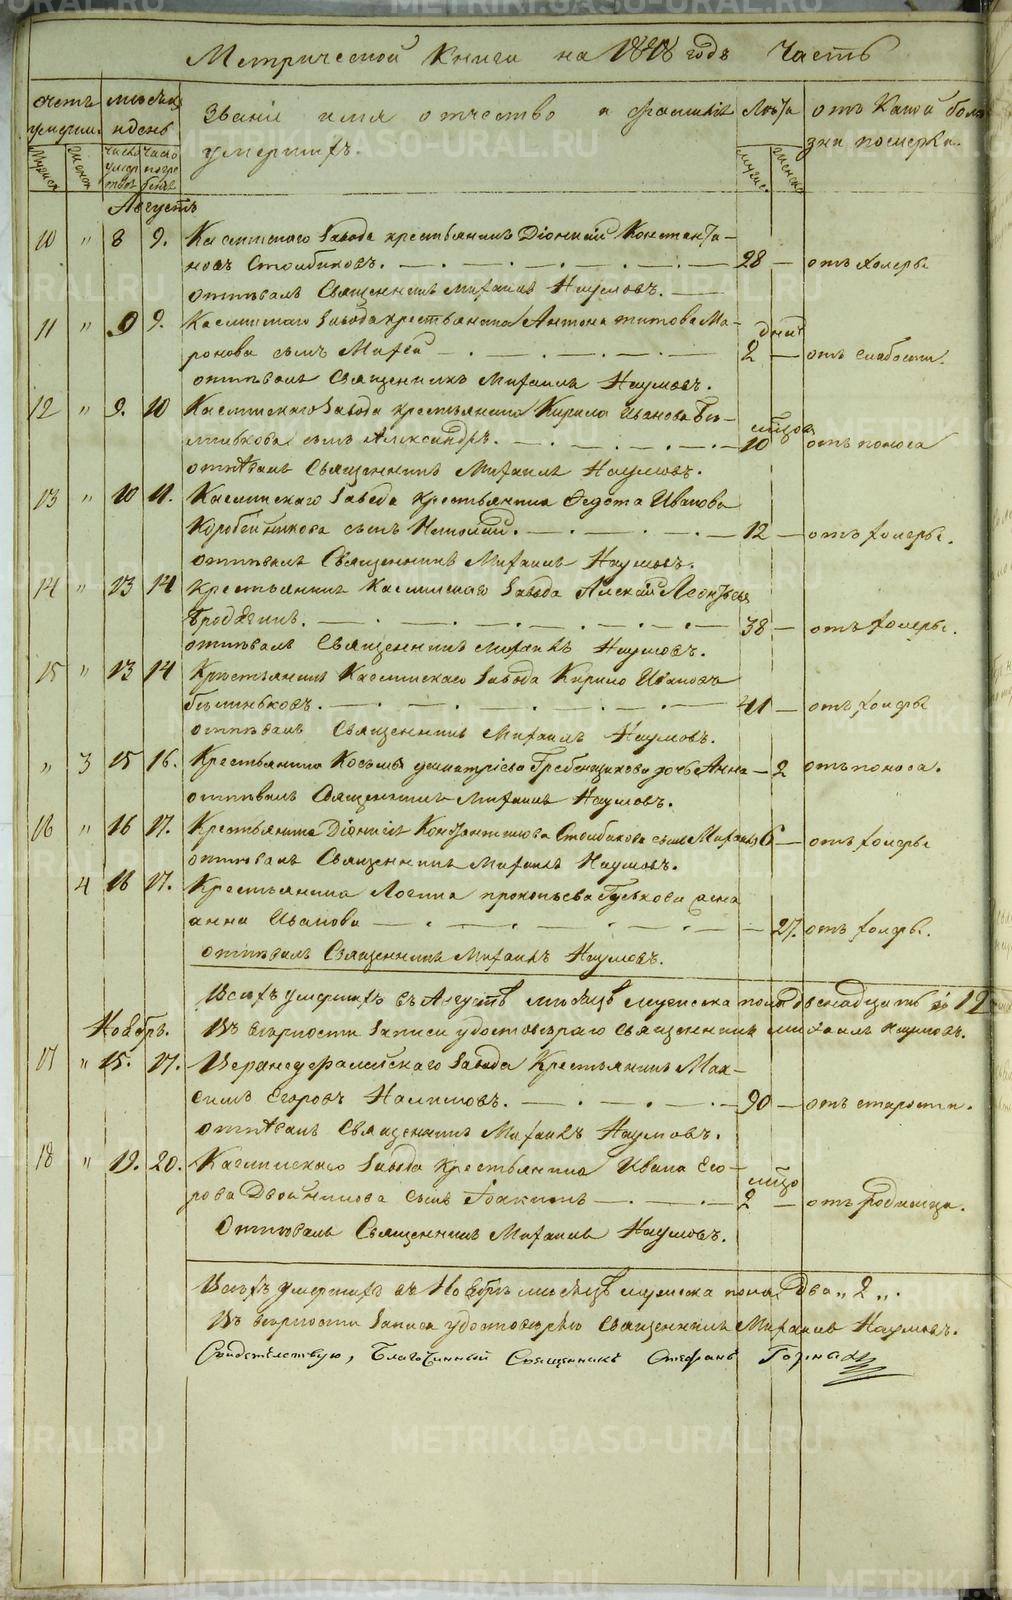 Метрической Книги на 1848 годъ Часть
счетъ умерш. мѣсяцъ и день Званiе имя отчество и фамилiе умершихъ. Лѣта отъ Какой болѣзни померъ.
Мужеск женск число умертвiя число погребенiя мужес. женска
Августъ
10 " 8 9. Каслинскаго Завода крестьянинъ Дiонисiй Константи-
новъ Столбиковъ. 28 — отъ холеры
отпѣвалъ Священникъ Михаилъ Наумовъ.
11 " 9 9. Каслинскаго Завода крестьянина Антона Титова Ма- дней
ронова сынъ Матѳей 2 — отъ слабости.
отпѣвалъ Священникъ Михаилъ Наумовъ.
12 " 9. 10 Каслинскаго Завода крестьянина Кирила Иванова Бѣ- мѣсцов
линькова сынъ Александръ. 10 отъ поноса
отпѣвалъ Священникъ Михаилъ Наумовъ.
13 " 10 11. Каслинскаго Завода крестьянина Ѳедота Иванова
Коробейникова сынъ 12 — отъ холеры.
отпѣвалъ Священникъ Михаилъ Наумовъ.
14 " 13 14 Крестьянинъ Каслинскаго Завода Алексѣй Леонтьевъ
Бродягинъ. 38 — отъ холеры.
отпѣвалъ Священникъ Михаилъ Наумовъ.
15 " 13 14 Крестьянинъ Каслинскаго Завода Кирило Ивановъ
Бѣлиньковъ. 41 — отъ холеры
отпѣвалъ Священникъ Михаилъ Наумовъ.
" 3 15 16. Крестьянина Косьмы Димитрiева Гребенщикова дочь Анна — 2 отъ поноса.
отпѣвалъ Священникъ Михаилъ Наумовъ.
16 " 16 17. Крестьянина Дiонисiя Константинова Столбикова сынъ Михаилъ 6 — отъ холеры
отпѣвалъ Священникъ Михаилъ Наумовъ.
4 16 17. Крестьянина Логина Прокопьева Гуськова жена
анна Иванова — 27. отъ холеры.
отпѣвалъ Священникъ Михаилъ Наумовъ.
Всѣхъ умершихъ въ Августѣ мѣсяцѣ мужеска пола двенадцать 12
Ноябрь. Въ вѣрности Записи удостовѣряю Священникъ Михаилъ Наумовъ.
17 " 15. 17. Верхнеуфалейскаго Завода Крестьянинъ Мак-
симъ Егоровъ Налимовъ. 90 — отъ старости.
отпѣвалъ Священникъ Михаилъ Наумовъ.
18 " 19. 20. Каслинскаго Завода крестьянина Ивана Его- мѣсцо
рова Двойникова сынъ Iоакимъ 2 — отъ родимца.
Отпѣвалъ Священникъ Михаилъ Наумовъ.
Всѣхъ умершихъ въ Ноябрѣ мѣсяцѣ мужеска пола Два „ 2 „.
Въ вѣрности Записи удостовѣряю Священникъ Михаилъ Наумовъ.
Свидѣтельствую, Благочинный Священникъ Стефанъ
METRIKI.GASO-URAL.RU